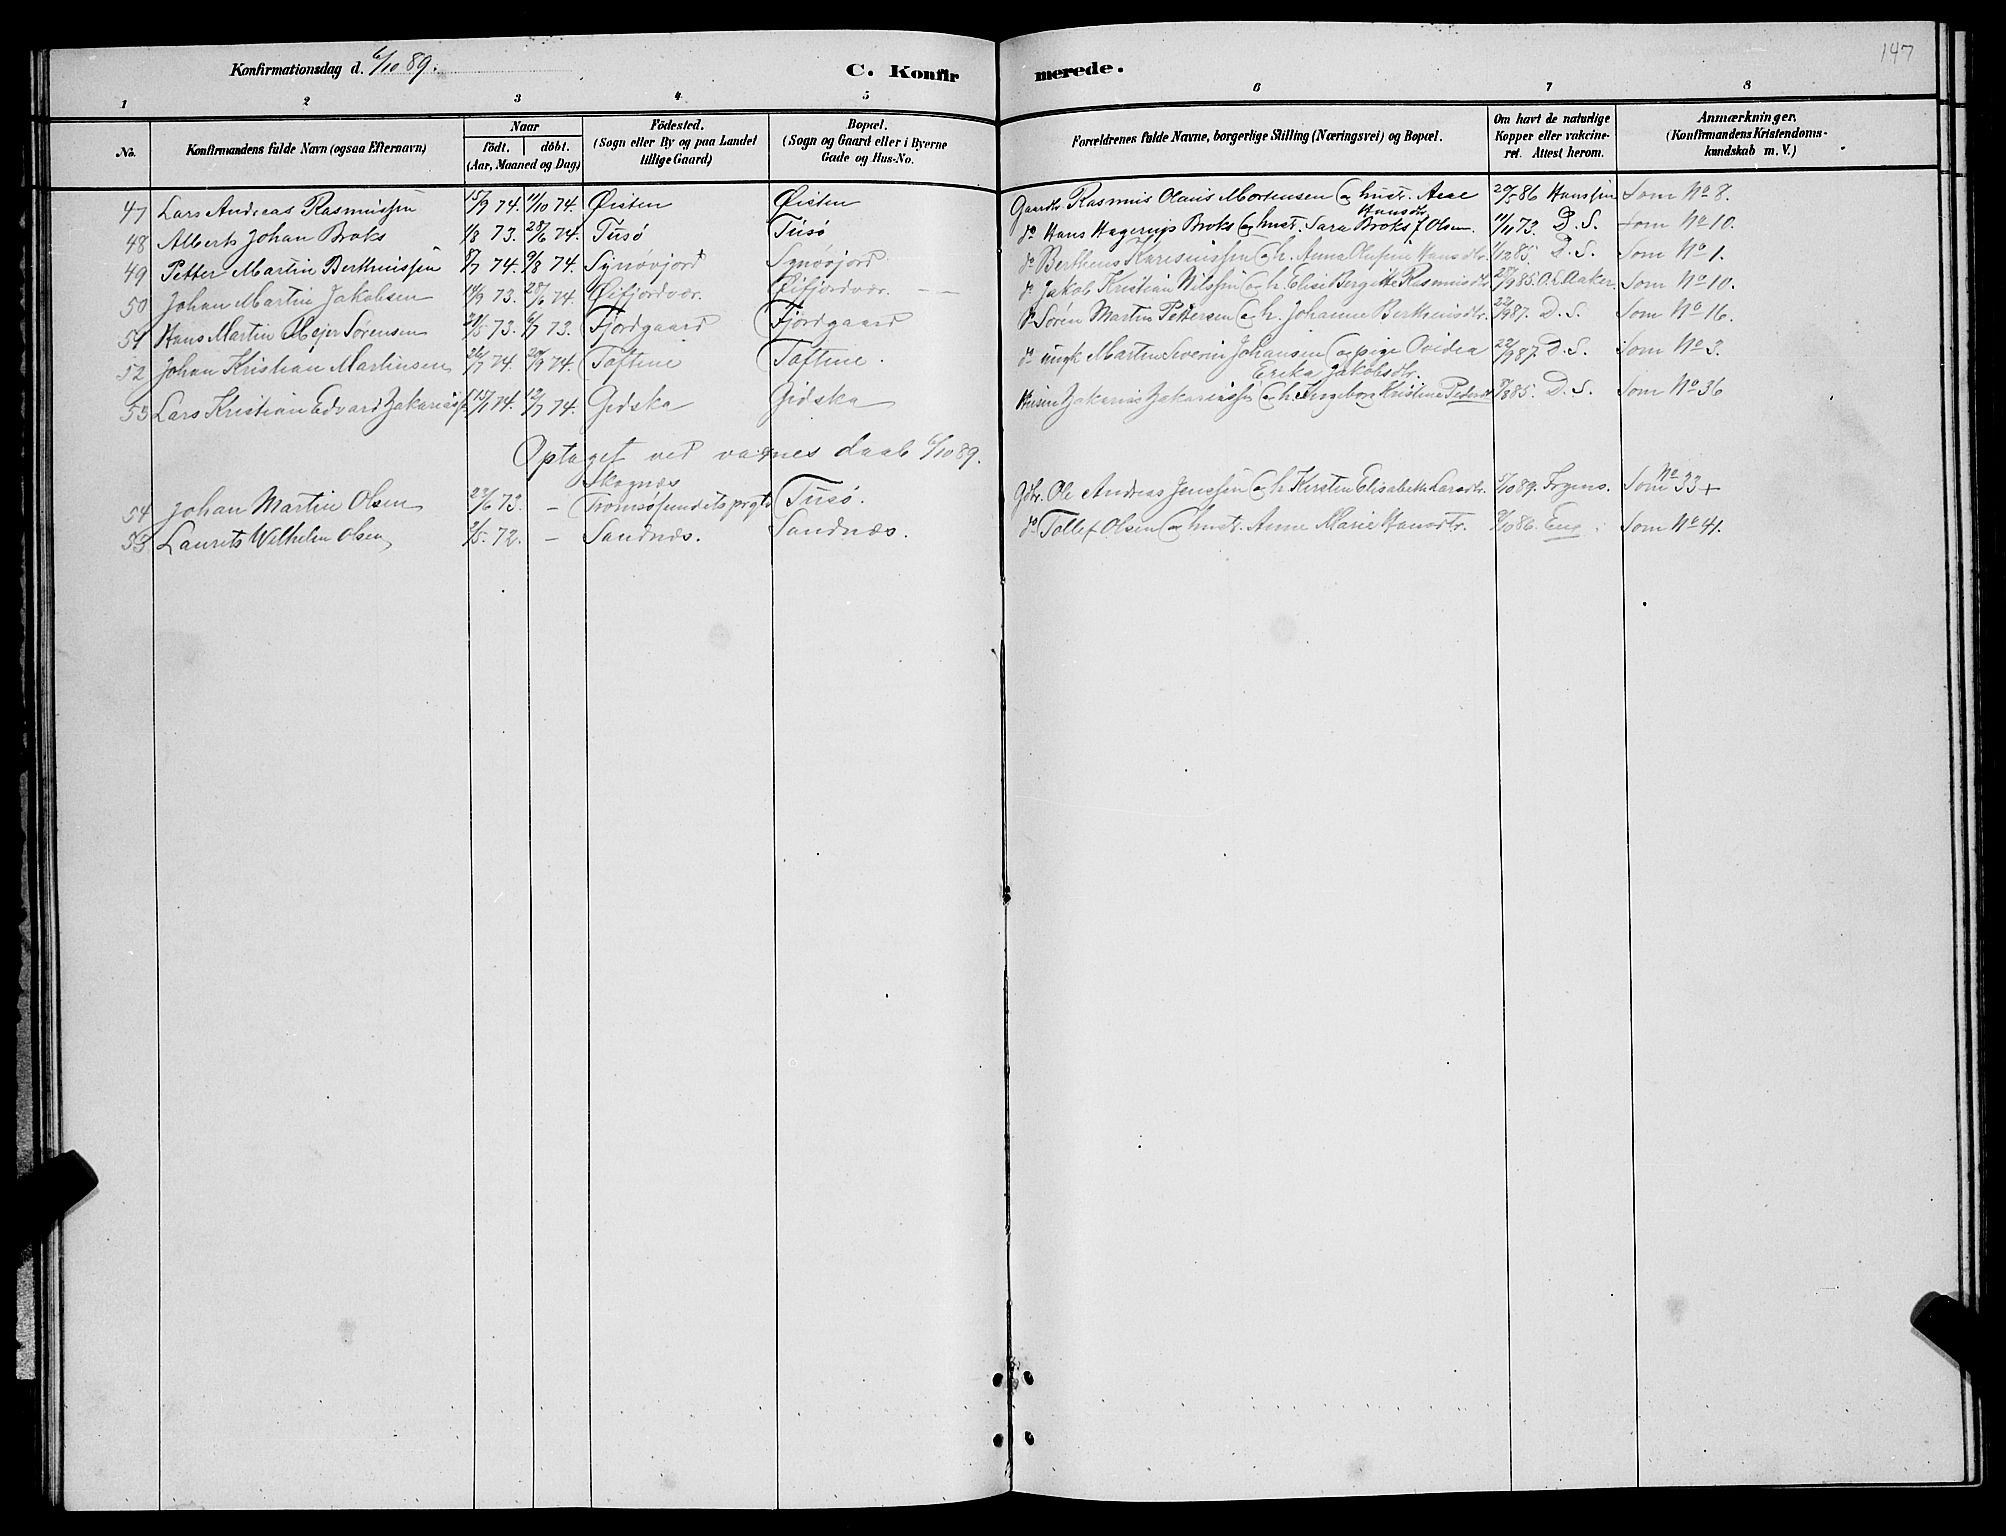 147
Konfirmationsdag d. 6/10 89. C. Konfirmerede.
1 2 3 4 5 6 7 8
No. Konfirmandens fulde Navn (ogsaa Efternavn) Naar födt. döbt. (Aar, Maaned og Dag) Födested. (Sogn eller By og paa Landet tillige Gaard) Bopæl. (Sogn og Gaard eller i Byerne Gade og Hus-No. Forældrenes fulde Navne, borgerlige Stilling (Næringsvei) og Bopæl. Om havt de naturlige Kopper eller vakcineret. Attest herom. Anmærkninger. (Konfirmandens Kristendomskundskab m. V.)
47 Lars Andreas Rasmussen 15/9 74. 11/10 74. Øisten Øisten Gaardbr. Rasmus Olaus Mortensen og hustr. Ane Hansdtr. 20/5 86 Hanssen Som No 8.
48 Alberts Johan Broks 1/8 73. 28/6 74. Tusø Tusø do Hans Hagerup Broks og hust. Sara Broks f. Olsen. 11/11 73. D. S. Som No 10.
49 Petter Martin Bertheussen 8/7 74. 9/8 74. Synøvjord Synøvjord do Bertheus Karesiussen og h. Anna Olufine Hansdtr. 1/12 85. D. S. Som No 1.
50 Johan Martin Jakobsen 14/9 73. 28/6 74. Øifjordvær. Øifjordvær. do Jakob Kristian Nilssen og h. Elise Bergitte Rasmusdtr. 28/9 85. O. L. Aaker. Som No 10.
51 Hans Martin Mejer Sørensen 21/5 73. 6/7 73. Fjordgaard Fjordgaard do Søren Martin Pettersen og h. Johanne Bertheusdtr. 22/9 87. D. S. Som No 16.
52 Johan Kristian Martinsen 26/7 74. 20/9 74. Toftene Toftene. do ungk Martin Severin Johansen og pige Ovidia Erika Jakobsdtr. 22/9 87. D. S. Som No 3.
53 Lars Kristian Edvard Zakariass. 15/1 74. 12/7 74. Gidska Gidska Husm Zakarias Zakariassen og h. Ingeborg Kristine Pedersdtr 9/8 85. D. S. Som No 36
Optaget ved voxnes daab 6/10 89.
54 Johan Martin Olsen 23/6 73. – Skognæs Tromsøsundets prgld Tusø. Gbr. Ole Andreas Jenssen og h. Kirsten Elisabeth Larsdtr. 5/10 89. Forgens. Som No 33 +
55 Laurits Wilhelm Olsen 2/5. 72. – Sandnæs. Sandnæs. do Tollef Olsen og hustr. Anne Marie Hansdtr. 9/10 86. Eng. Som No 41.